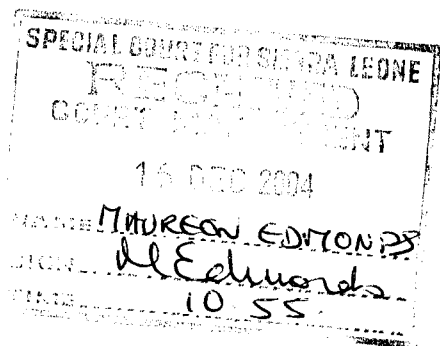 SPECIAL COURT FOR SIERRA LEONE
RECEIVED
COURT MANAGEMENT
16 DEC 2004
NAME MAUREEN EDMONDS
SIGN M Edmonds
TIME 10 55